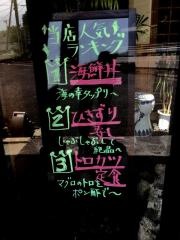 当店人気!!
ランキング
1 海鮮丼
海の幸タップリ〜
2 ひきずり
しゃぶしゃぶして
絶品へ
3 トロカツ
定食
マグロのトロを
ポン酢で〜